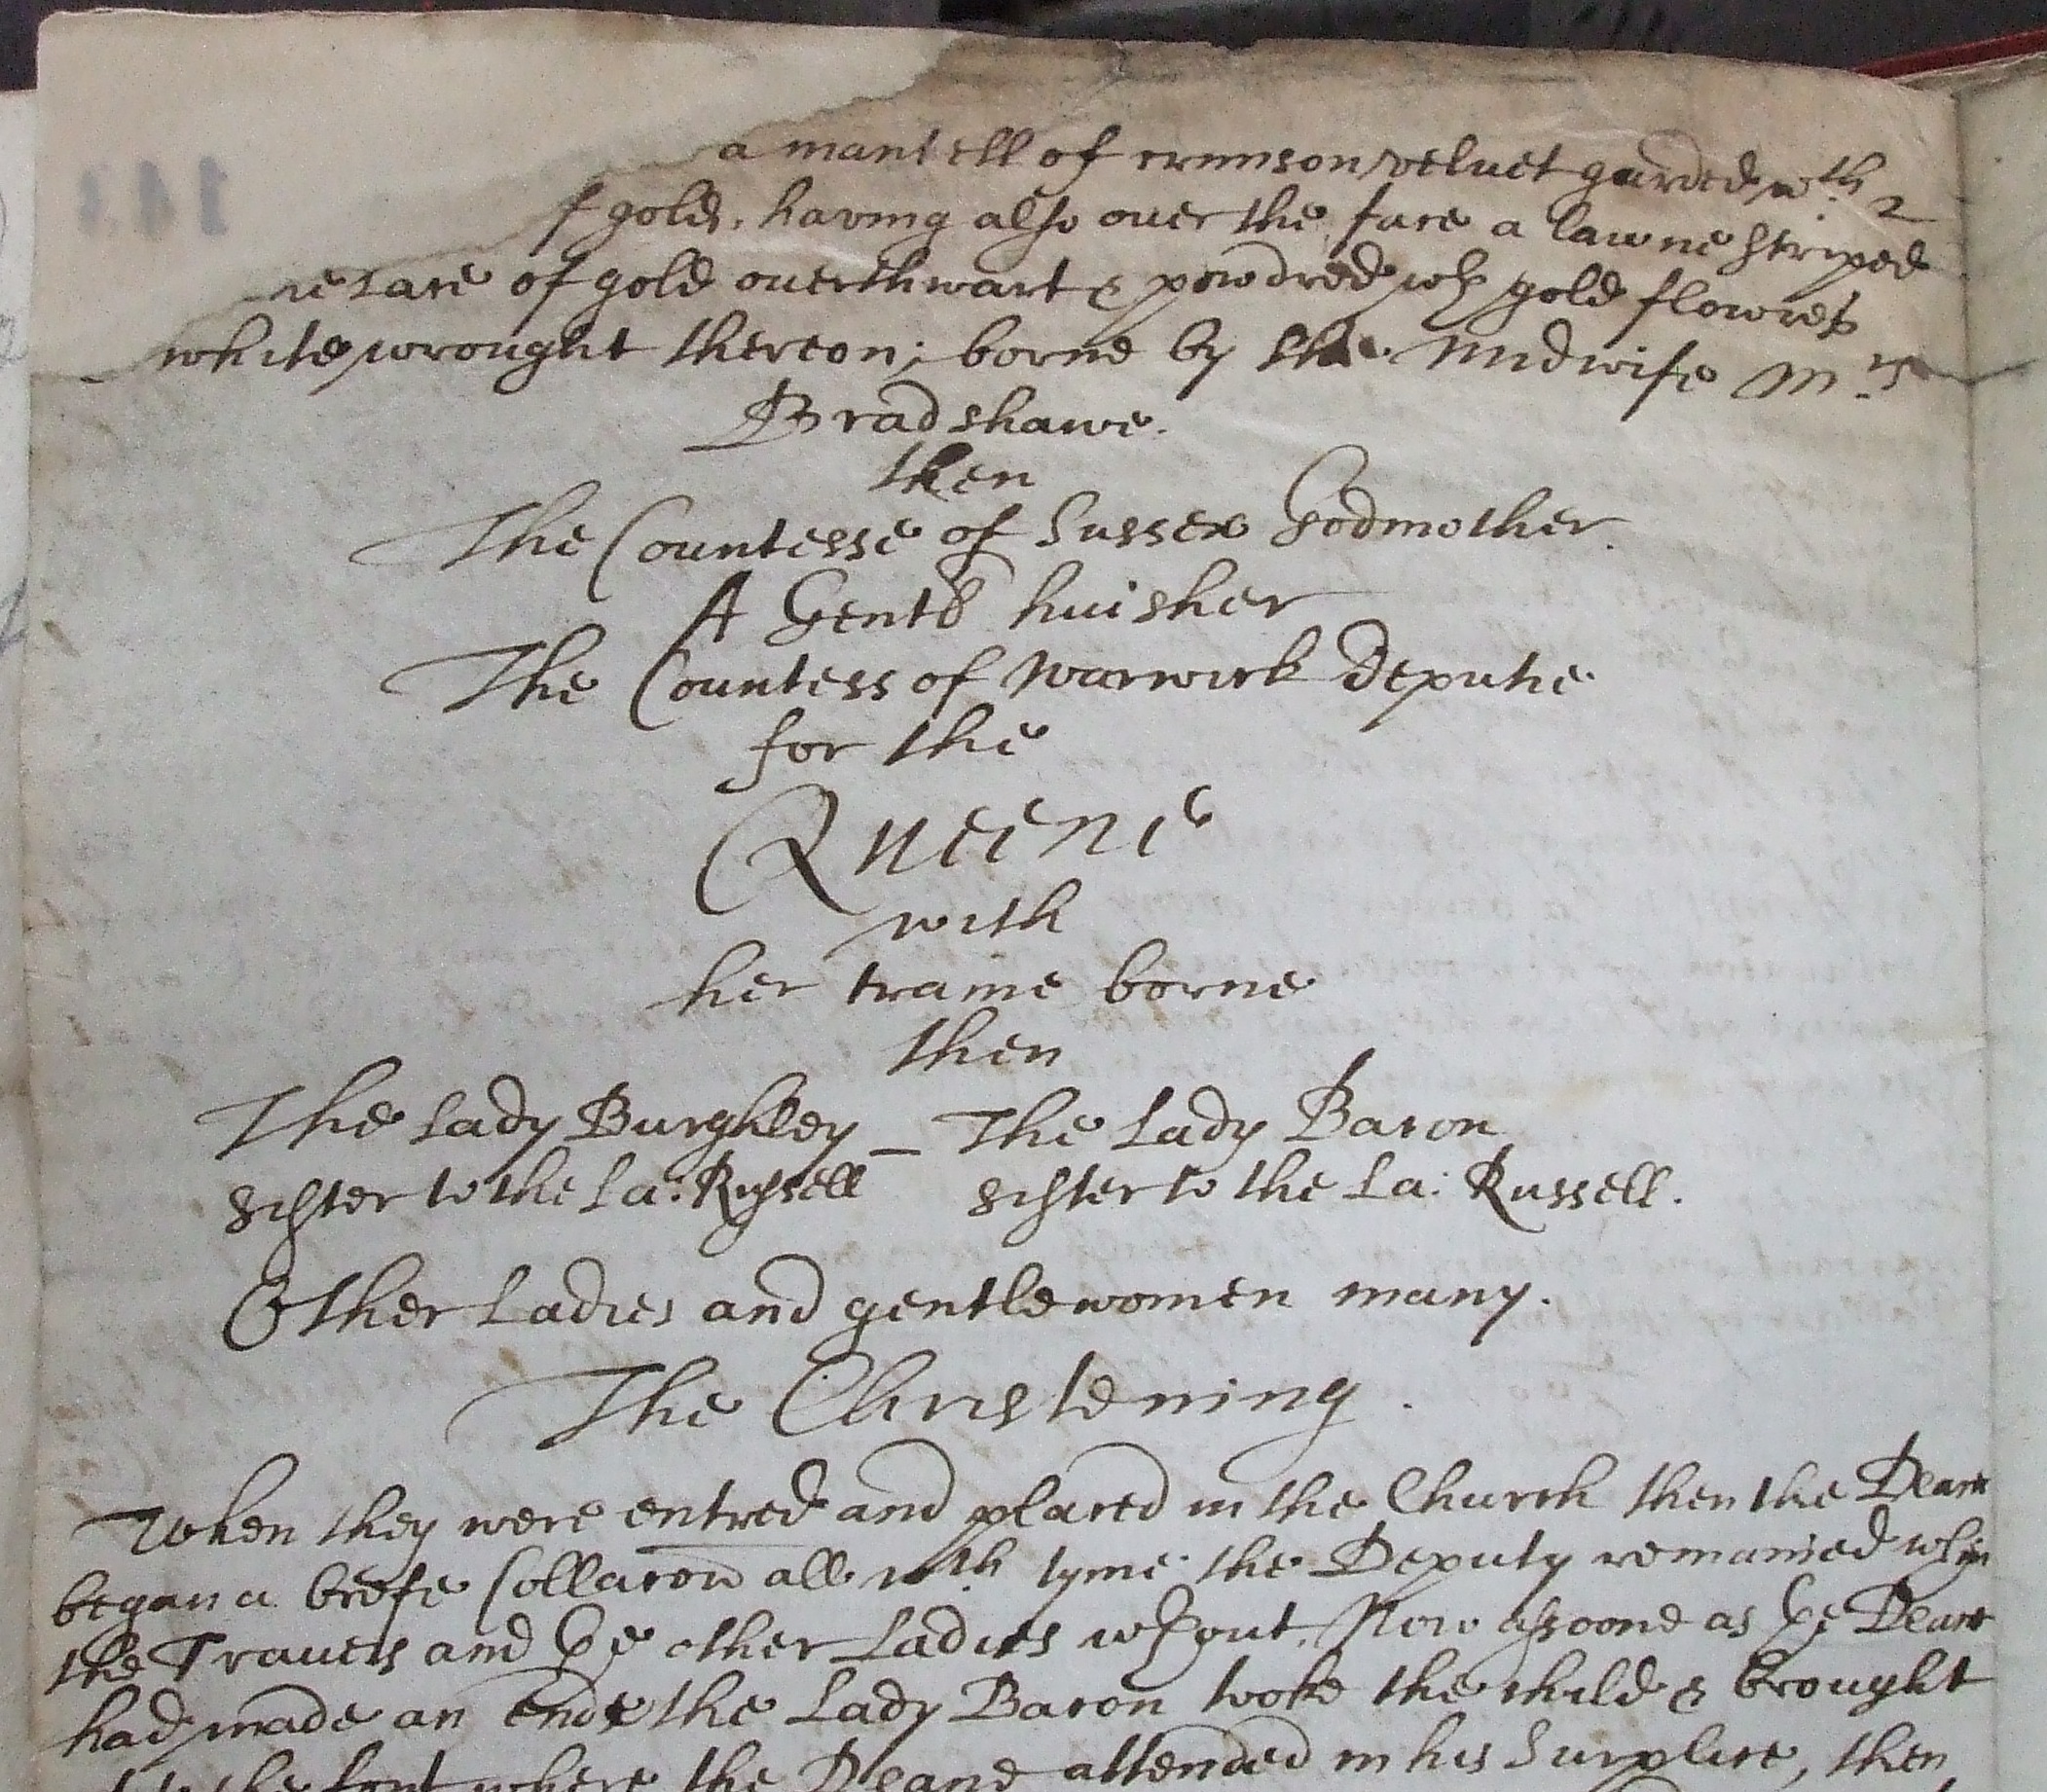 a mantell of crimson velvet garded wth 2
f gold, having also over the face a lawne striped
lace of gold overthwart & powdred wth gold flowres
white wrought thereon; borne by the Midwife Mrs
Bradshawe.
then
The Countesse of Sussex Godmother.
A Gent huisher
The Countess of Warwick Deputie
for the
Queene
with
her traine borne
then
The Lady Burghley — The Lady Bacon
sister to the La: Russell sister to the La: Russell.
Other Ladies and gentlewomen many.
The Christening.
When they were entred and placed in the Church then the Deane
began a brefe Collacon all wch tyme the Deputy remained wthin
the Travers and ye other Ladies wthout. Now assoone as ye Deane
had made an ende the Lady Bacon tooke the child & brought
the font where the Deane attended in his Surplice, then